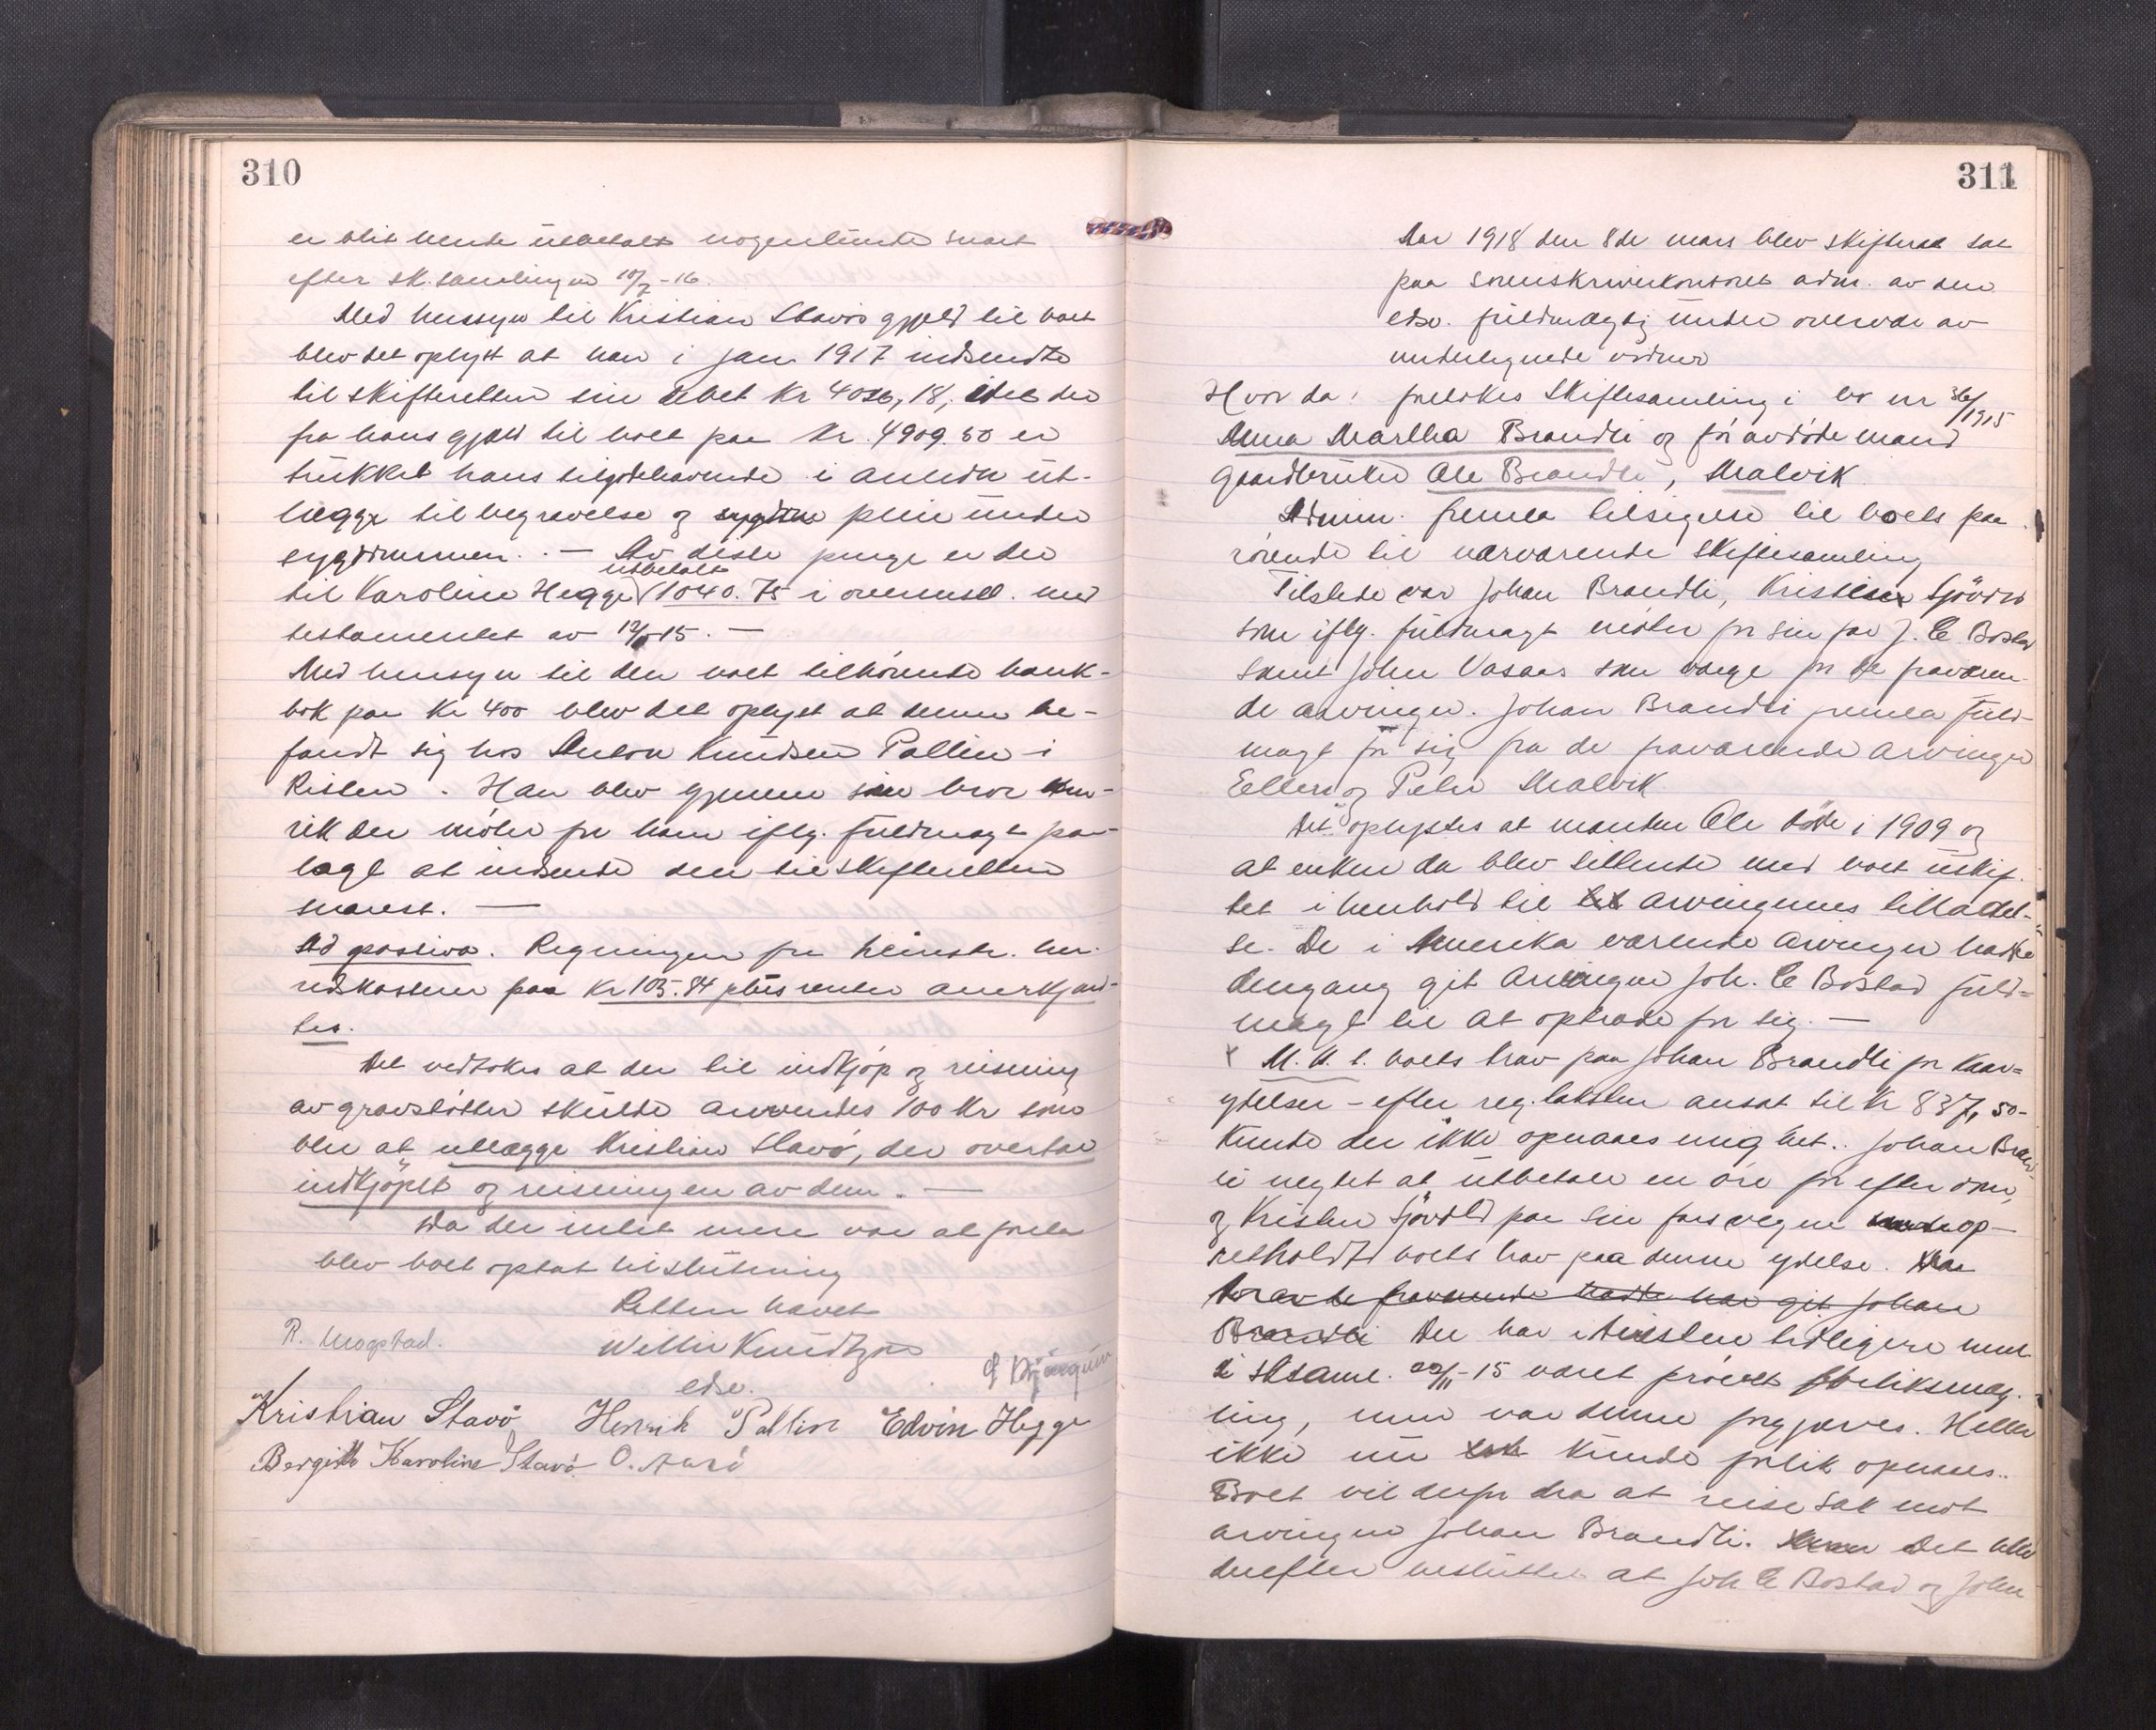 310
er blit hende utbetalt nogenlunde snart
efter sk.samlingen 10/7-16.
Med hensyn til Kristian Stavøs gjæld til boet
blev det oplyst at han i jan 1917 indsendte
til skifteretten sin Kr 4036,18, idet der
fra hans gjæld til boet paa Kr. 4909.50 er
trukket hans tilgodehavende i anledn ut-
lægge til begravelse og pleie under
sygdommen. — Av disse penge er der
utbetalt
til Karoline Hegge 1040.75 i overensst. med
testamentet av 15. —
Med hensyn til den boet tilhørende bank-
bok paa Kr 400 blev det oplyst at denne be-
fandt sig hos Anton Knudsen Pallin i
Rislen. Han blev gjennem sin bror Hen-
rik der møter for ham iflg. fuldmagt paa-
lagt at indsende den til skifteretten
snarest. —
Ad passiva. Regningen fra Leinstr. her-
redskasserer paa Kr 105.84 plus renter anerkjend-
tes.
Det vedtokes at der til indkjøp og reisning
av gravstøtter skulde anvendes 100 Kr som
blir at utlægge Kristian Stavø, der overtar
indkjøpet og reisningen av dem. —
Da der intet mere var at foreta
blev boet optat til slutning
Retten hævet
R. Mogstad.
Willie Knudtzon
edsv.
Kristian Stavø Henrik Pallin Edvin Hegge
Bergitte Karoline Stavø O. Aunø
311
Aar 1918 den 8de mars blev skifteret sat
paa sorenskriverkontoret adm. av den
edsv. fuldmægtig under overvær av
undertegnede vidner
Hvor da: foretokes skiftesamling i bo nr 36/1915
Anna Martha Brandli og før avdøde mand
gaardbruker Ole Brandli, Malvik
Admin. fremla tilsigelse til boets paa
rørende til nærværende skiftesamling
Tilstede var Johan Brandli, Kristen Sjøvold
som iflg. fuldmagt møter for sin far J. C. Bostad
samt John Vasaas som værge for de fraværen-
de arvinger. Johan Brandli fremla fuld-
magt for sig fra de fraværende arvinger
Ellen og Peter Malvik
Det oplystes at manden Ole døde i 1909 og
at enken da blev sittende med boet uskif-
tet i henhold til arvingernes tilladel-
se. De i Amerika værende arvinger hadde
dengang git arvingen Joh. C Bostad fuld-
magt til at optræde for sig. —
x M. H. t. boets krav paa Johan Brandli for kaar-
ydelser – efter reg. taksten ansat til Kr 837,50-
kunde der ikke opnaaes enighet. Johan Brand
li negtet at utbetale en øre før efter dom,
og Kristen Sjøvold paa sin fars vegne op-
retholdt boets krav paa denne ydelse.
for av de fraværende hadde har git Johan
Brandli Der har i tvisten tidligere
i sksaml. 22/11-15 været prøvet forliksmæg-
ling, men var denne forgjæves. Heller
ikke nu kunde forlik opnaaes.
Boet vil derfor ha at reise sak mot
arvingen Johan Brandli. Det blev
derefter besluttet at Joh C Bostad og John